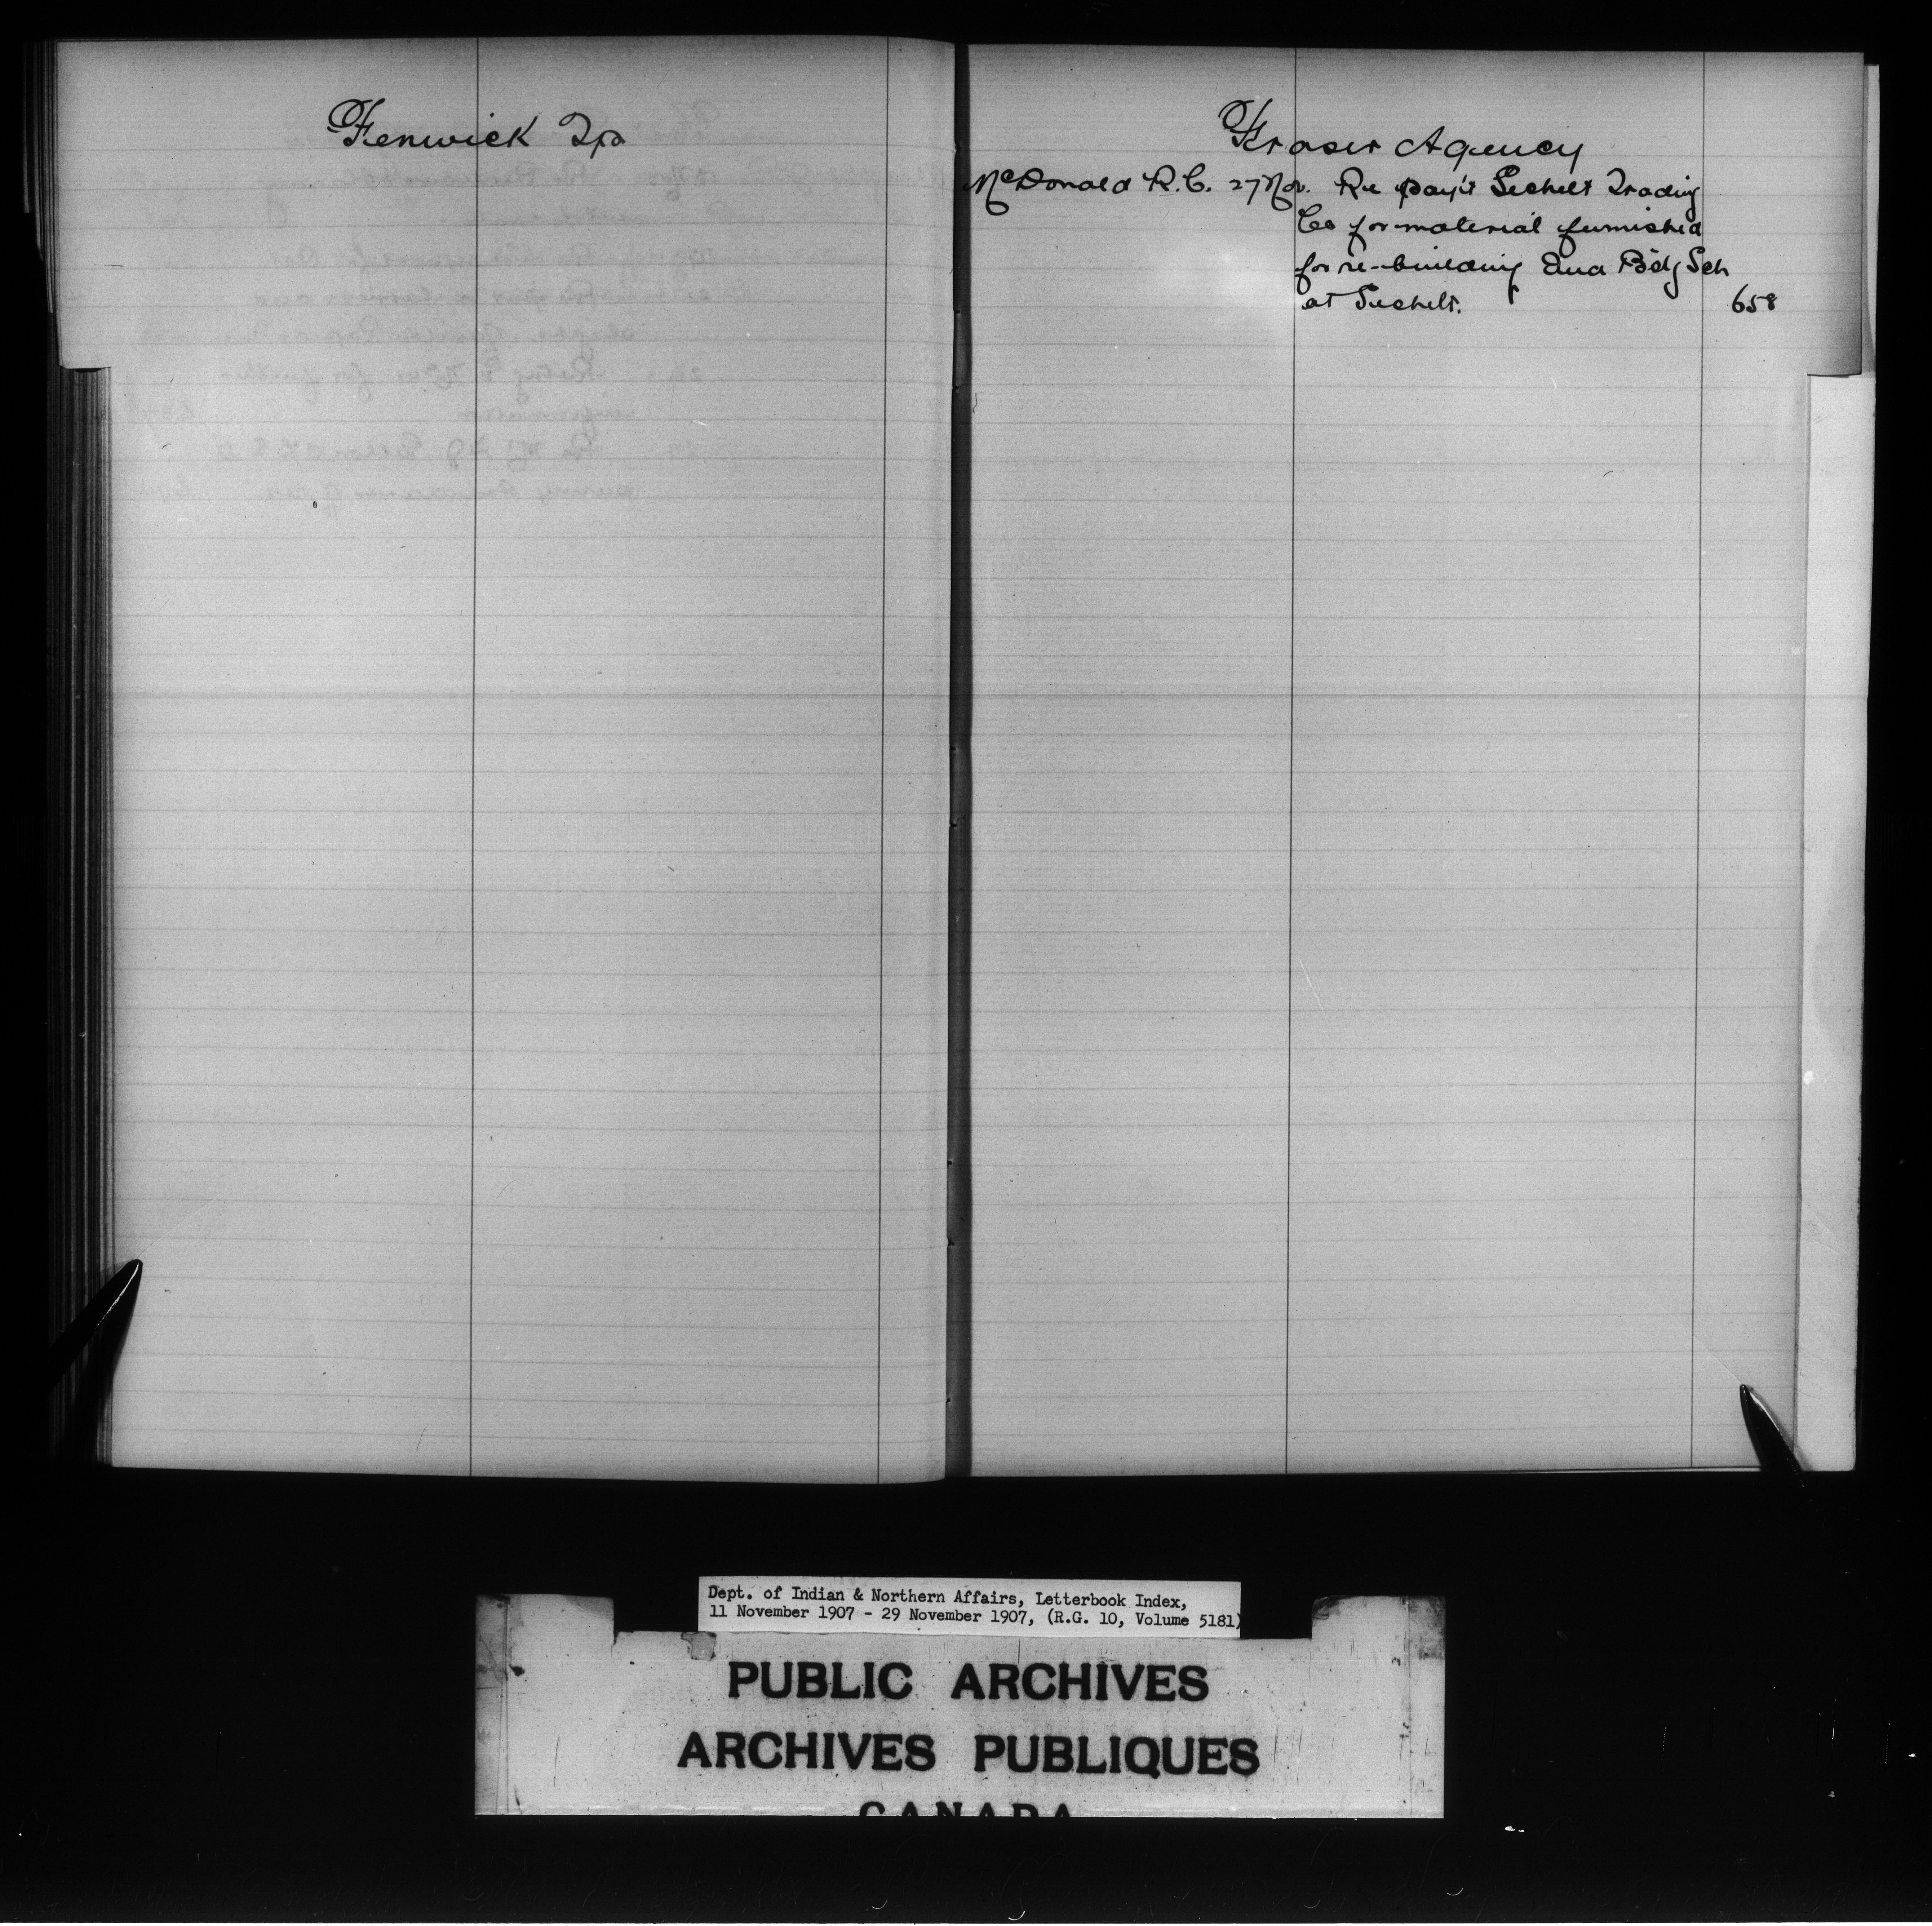 Fenwick Tp
Fraser Agency
McDonald R.C. 27 Nov. Re pay't Sechelt Trading
Co for material furnished
for re-building Ind Bdg Sch
at Sechelt. 658
Dept. of Indian & Northern Affairs, Letterbook Index,
11 November 1907 - 29 November 1907, (R.G. 10, Volume 5181)
PUBLIC ARCHIVES
ARCHIVES PUBLIQUES
CANADA